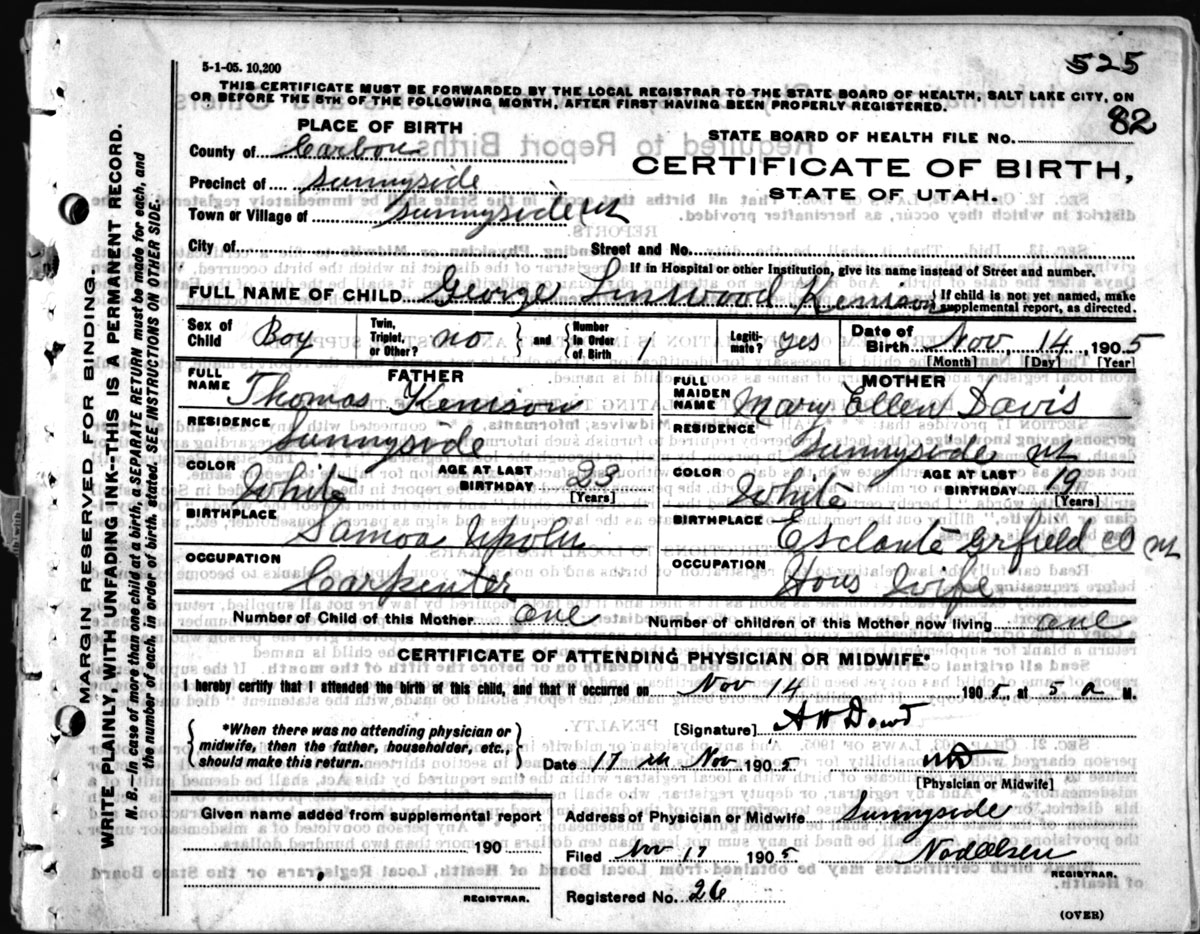 5-1-05. 10,200
525
THIS CERTIFICATE MUST BE FORWARDED BY THE LOCAL REGISTRAR TO THE STATE BOARD OF HEALTH, SALT LAKE CITY, ON
OR BEFORE THE 5TH OF THE FOLLOWING MONTH, AFTER FIRST HAVING BEEN PROPERLY REGISTERED.
PLACE OF BIRTH
STATE BOARD OF HEALTH FILE NO. 82
County of Carbon
CERTIFICATE OF BIRTH,
Precinct of Sunnyside
STATE OF UTAH.
Town or Village of Sunnyside Ut
City of Street and No.
If in Hospital or other Institution, give its name instead of Street and number.
FULL NAME OF CHILD George Linwood Kenison { If child is not yet named, make supplemental report, as directed.
Sex of Child Boy Twin, Triplet, or Other? no } and { Number in Order of Birth 1 Legiti-mate? yes Date of Birth Nov 14, 1905
[Month] [Day] [Year]
FATHER
FULL NAME Thomas Kenison
RESIDENCE Sunnyside
COLOR White AGE AT LAST BIRTHDAY 23
[Years]
BIRTHPLACE Samoa Upolu
OCCUPATION Carpenter
MOTHER
FULL MAIDEN NAME Mary Ellen Davis
RESIDENCE Sunnyside Ut
COLOR White AGE AT LAST BIRTHDAY 19
[Years]
BIRTHPLACE Esclante Grfield CO Ut
OCCUPATION Hous Wife
Number of Child of this Mother one Number of children of this Mother now living one
CERTIFICATE OF ATTENDING PHYSICIAN OR MIDWIFE*
I hereby certify that I attended the birth of this child, and that it occurred on Nov 14 1905 at 5 a M.
{ *When there was no attending physician or midwife, then the father, householder, etc., should make this return. }
[Signature] A W Dowd
Date 17 th Nov 1905 MD
[Physician or Midwife]
Given name added from supplemental report
190
REGISTRAR.
Address of Physician or Midwife Sunnyside
Filed Nov 17 1905
REGISTRAR.
Registered No. 26
(OVER)
MARGIN RESERVED FOR BINDING.
WRITE PLAINLY WITH UNFADING INK--THIS IS A PERMANENT RECORD.
N. B.--In case of more than one child at a birth, a SEPARATE RETURN must be made for each, and
the number of each, in order of birth, stated. SEE INSTRUCTIONS ON OTHER SIDE.